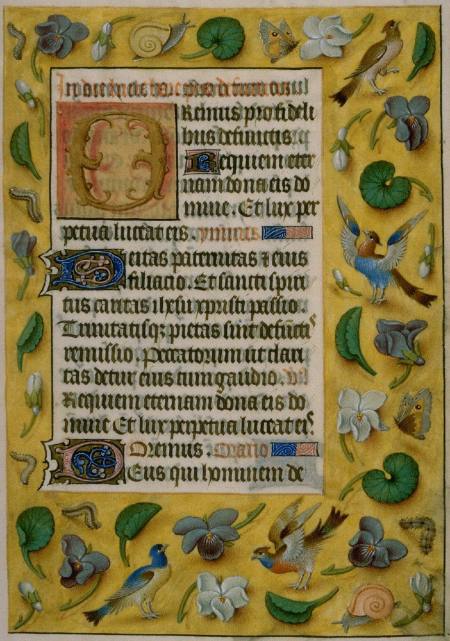 Remus pro fideli
bus defunctis.
Requiem eter
nam dona eis do
mine. Et lux per
petua luceat eis.
Deitas paternitas & eius
filiacio. Et sancti spiri
tus caritas ihesu xpristi passio.
Trinitatisqz pietas sint defuncti
remissio. Peccatorum sit clari
tas detur eius cum gaudio.
Requiem eternam dona eis do
mine Et lux perpetua luceat ei
Oremus. Oratio
Deus qui hominem de